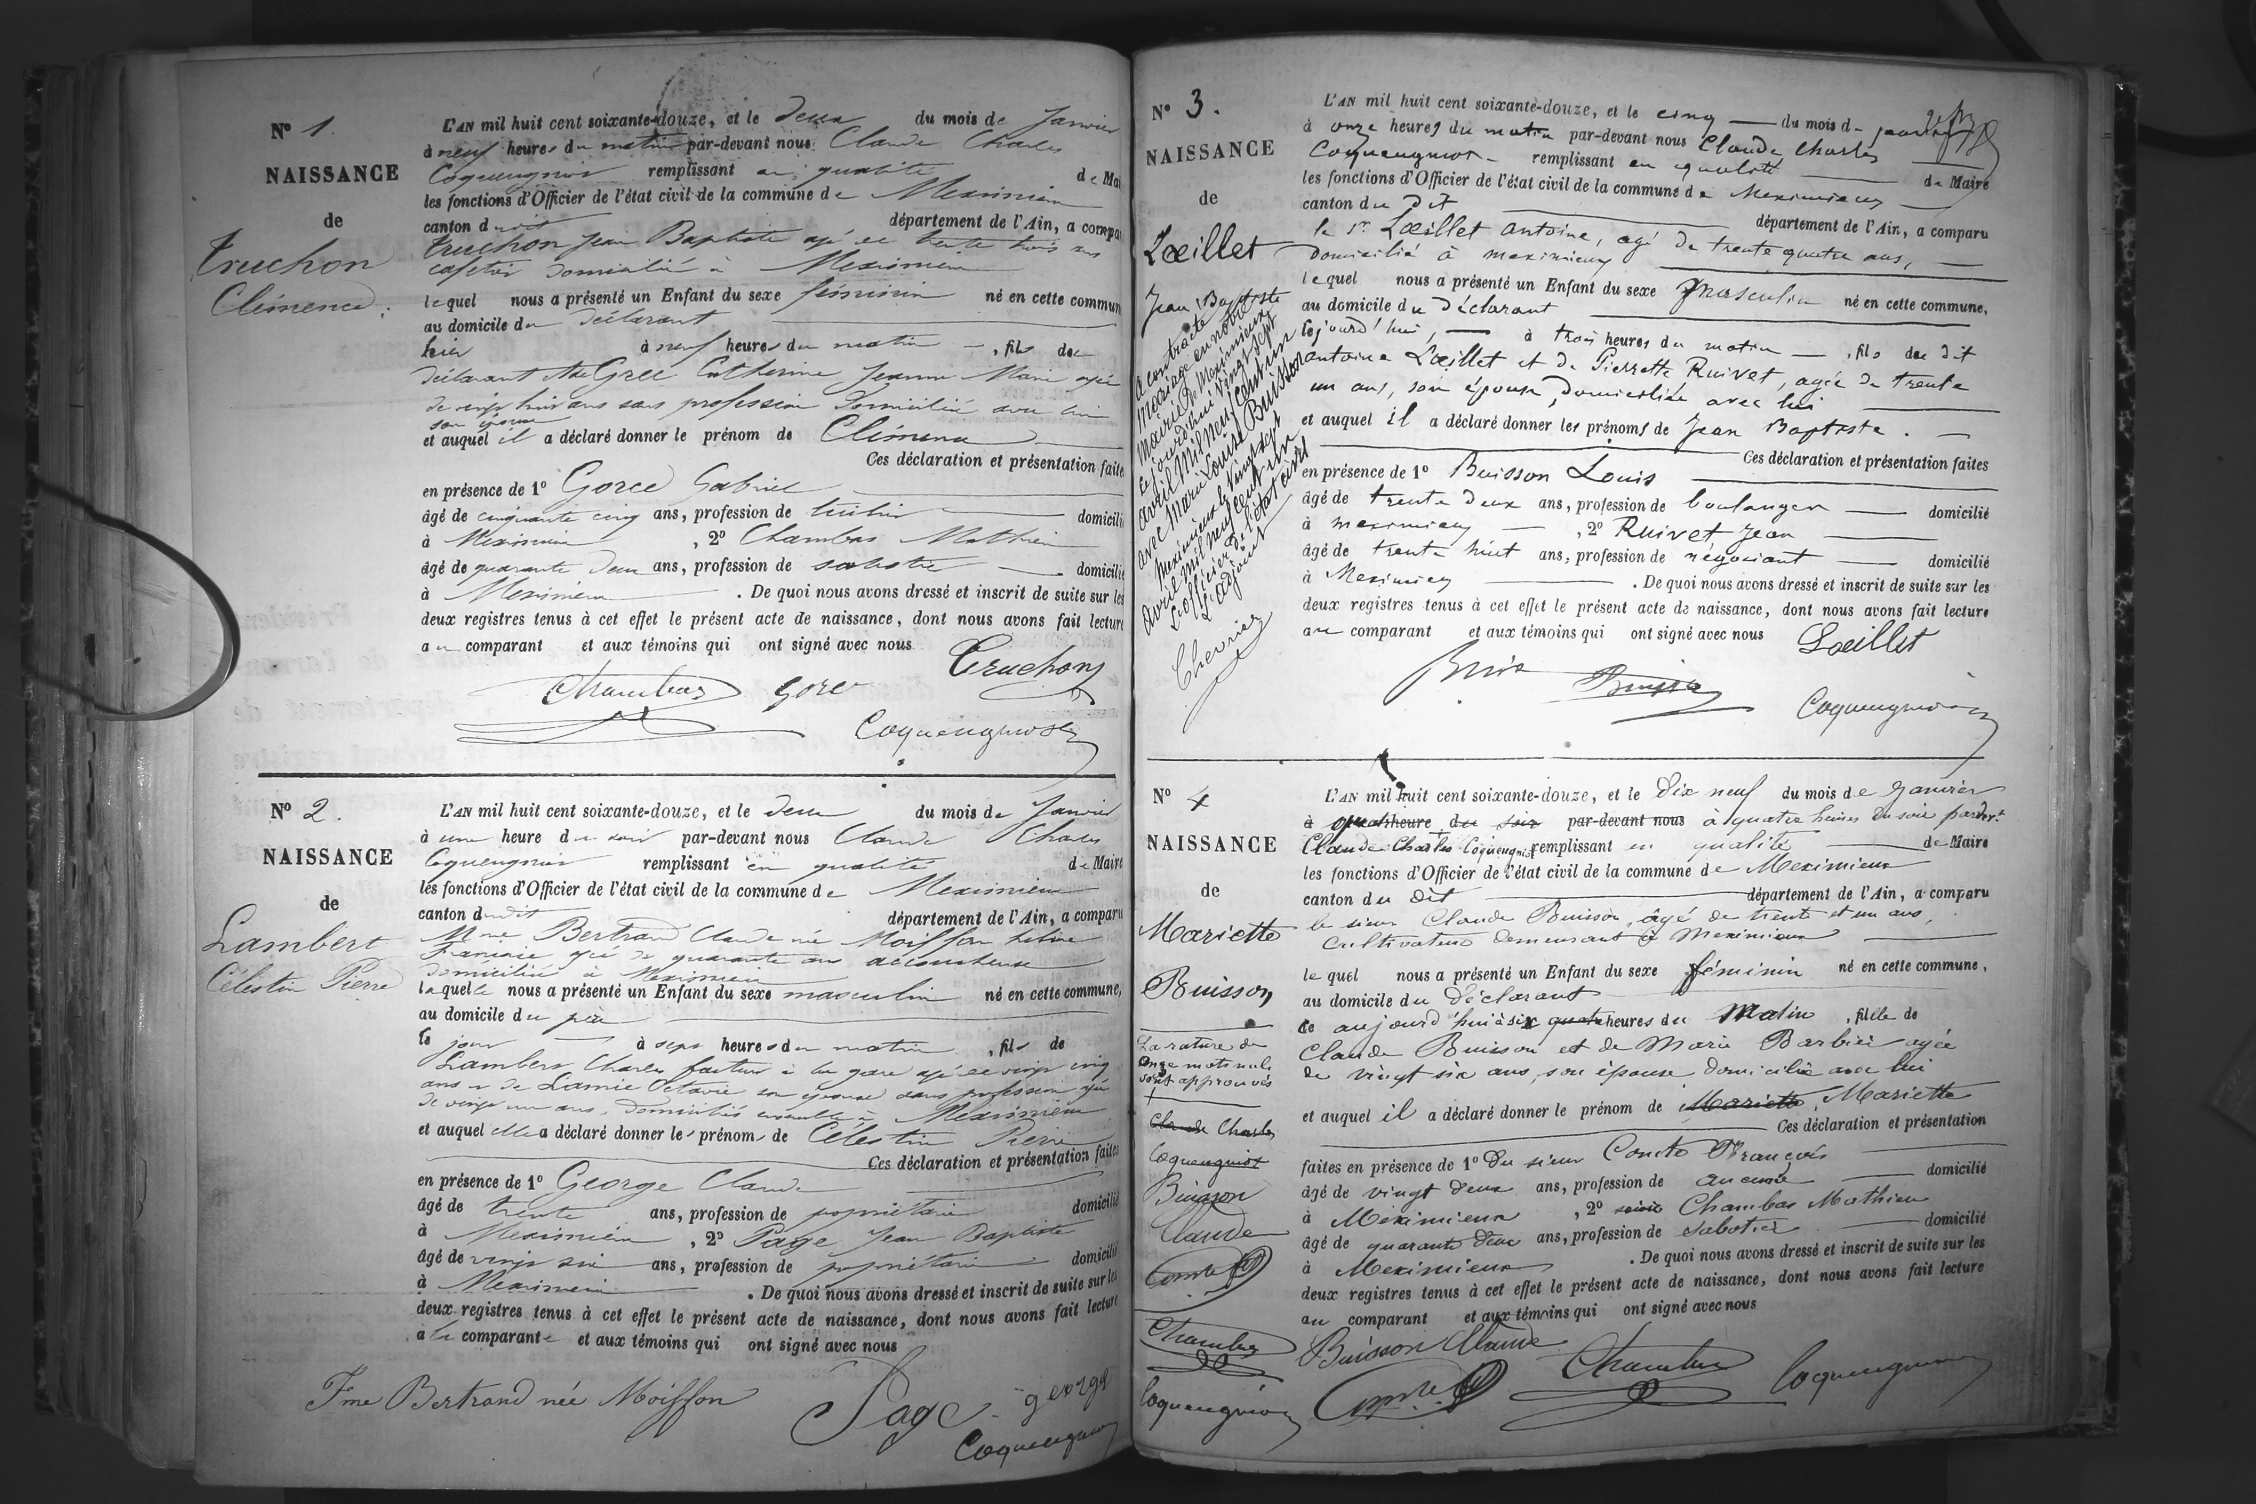 N° 1.
NAISSANCE
de
Truchon
Clémence.
L'AN mil huit cent soixante-douze, et le deux du mois de Janvier
à neuf heures du matin par-devant nous Claude Charles
Coqueugniot remplissant en qualité de Mai
les fonctions d'Officier de l'état civil de la commune de Meximieux
canton dudit département de l'Ain, a compa
Truchon Jean Baptiste agé de trente trois ans
cafetier domicilié à Meximieux
lequel nous a présenté un Enfant du sexe féminin né en cette commun
au domicile du déclarant
hier à neuf heures du matin, fils de
déclarant Catherine Jeanne Marie agée
de vingt huit ans sans profession domiciliée avec lui
son épouse
et auquel il a déclaré donner le prénom de Clémence
Ces déclaration et présentation faite
en présence de 1° Gorce Gabriel
âgé de cinquante cinq ans, profession de domicili
à Meximieux, 2° Chambas Mathieu
âgé de quarante deux ans, profession de sabotier domicilié
à Meximieux. De quoi nous avons dressé et inscrit de suite sur les
deux registres tenus à cet effet le présent acte de naissance, dont nous avons fait lecture
au comparant et aux témoins qui ont signé avec nous
Truchon
Chambas Gorce
Coqueugniot
N° 2.
NAISSANCE
de
Lambert
Célestin Pierre
L'AN mil huit cent soixante-douze, et le deux du mois de Janvier
à une heure du soir par-devant nous Claude Charles
Coqueugniot remplissant en qualité de Maire
les fonctions d'Officier de l'état civil de la commune de Meximieux
canton dudit département de l'Ain, a comparu
Mme Bertrand Claude née Moiffon
agée de quarante ans accoucheuse
domiciliée à Meximieux
laquelle nous a présenté un Enfant du sexe masculin né en cette commune,
au domicile du père
ce jour à sept heures du matin, fils de
Lambert Charles facteur à la gare agé de vingt cinq
ans et de Lamie Octavie son épouse sans profession agée
de vingt un ans, domiciliés ensemble à Meximieux
et auquel elle a déclaré donner les prénoms de Célestin Pierre
Ces déclaration et présentation faites
en présence de 1° George Claude
âgé de trente ans, profession de propriétaire domicilié
à Meximieux, 2° Page Jean Baptiste
âgé de vingt six ans, profession de propriétaire domicilié
à Meximieux. De quoi nous avons dressé et inscrit de suite sur les
deux registres tenus à cet effet le présent acte de naissance, dont nous avons fait lecture
à la comparante et aux témoins qui ont signé avec nous
Fme Bertrand née Moiffon
Page george
Coqueugniot
N° 3.
NAISSANCE
de
Lœillet
Jean Baptiste
A contracté
mariage en notre
mairie de Meximieux
cejourd'hui vingt sept
avril mil neuf cent un
avec Marie Louise Buisson
Meximieux le vingt sept
Avril mil neuf cent un
L'officier de l'état civil
L'adjoint
Chevrier
L'AN mil huit cent soixante-douze, et le cinq du mois de janvier
à onze heures du matin par-devant nous Claude Charles
Coqueugniot remplissant en qualité de Maire
les fonctions d'Officier de l'état civil de la commune de Meximieux
canton du dit département de l'Ain, a comparu
le sr Lœillet Antoine, agé de trente quatre ans,
domicilié à Meximieux
lequel nous a présenté un Enfant du sexe masculin né en cette commune,
au domicile du déclarant
cejourd'hui, à trois heures du matin, fils du dit
Antoine Lœillet et de Pierrette Ruivet, agée de trente
un ans, son épouse, domiciliée avec lui
et auquel il a déclaré donner les prénoms de Jean Baptiste.
Ces déclaration et présentation faites
en présence de 1° Buisson Louis
âgé de trente deux ans, profession de boulanger domicilié
à Meximieux, 2° Ruivet Jean
âgé de trente huit ans, profession de négociant domicilié
à Meximieux. De quoi nous avons dressé et inscrit de suite sur les
deux registres tenus à cet effet le présent acte de naissance, dont nous avons fait lecture
au comparant et aux témoins qui ont signé avec nous
Lœillet
Buisson
Coqueugniot
N° 4
NAISSANCE
de
Mariette
Buisson
La rature de
onze mots nuls
sont approuvés
Claude Charles
Coqueugniot
Buisson
Claude
Comte
Chambas
Coqueugniot
L'AN mil huit cent soixante-douze, et le dix neuf du mois de janvier
à quatre heure du soir par-devant nous à quatre heures du soir par dvt
Claude Charles Coqueugniot remplissant en qualité de Maire
les fonctions d'Officier de l'état civil de la commune de Meximieux
canton du dit département de l'Ain, a comparu
le sieur Claude Buisson, âgé de trente et un ans,
cultivateur demeurant à Meximieux
lequel nous a présenté un Enfant du sexe féminin né en cette commune,
au domicile du déclarant
ce aujourd'hui à six quatre heures du matin, fille de
Claude Buisson et de Marie Barbier agée
de vingt six ans, son épouse domiciliée avec lui
et auquel il a déclaré donner le prénom de Mariette, Mariette
Ces déclaration et présentation
faites en présence de 1° du sieur Comte François
âgé de vingt deux ans, profession de aucune domicilié
à Meximieux, 2° Chambas Mathieu
âgé de quarante deux ans, profession de sabotier domicilié
à Meximieux. De quoi nous avons dressé et inscrit de suite sur les
deux registres tenus à cet effet le présent acte de naissance, dont nous avons fait lecture
au comparant et aux témoins qui ont signé avec nous
Buisson Claude Chambas Coqueugniot
Comte